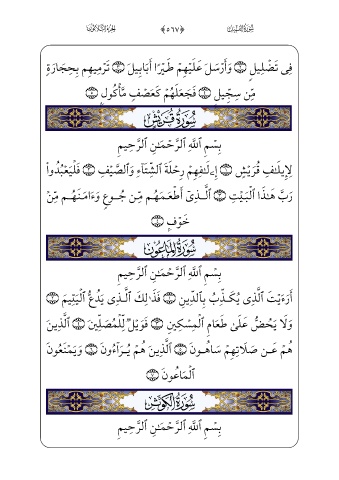 سُورَةُ الفِيلِ ﴿٥٦٧﴾ الجزء الثلاثون
فِى تَضْلِيلٍ ۝ وَأَرْسَلَ عَلَيْهِمْ طَيْرًا أَبَابِيلَ ۝ تَرْمِيهِم بِحِجَارَةٍ
مِّن سِجِّيلٍ ۝ فَجَعَلَهُمْ كَعَصْفٍ مَّأْكُولٍ ۝
سُورَةُ قُرَيْشٍ
بِسْمِ ٱللَّهِ ٱلرَّحْمَـٰنِ ٱلرَّحِيمِ
لِإِيلَـٰفِ قُرَيْشٍ ۝ إِۦلَـٰفِهِمْ رِحْلَةَ ٱلشِّتَآءِ وَٱلصَّيْفِ ۝ فَلْيَعْبُدُوا۟
رَبَّ هَـٰذَا ٱلْبَيْتِ ۝ ٱلَّذِىٓ أَطْعَمَهُم مِّن جُوعٍ وَءَامَنَهُم مِّنْ
خَوْفٍ ۝
سُورَةُ المَاعُونِ
بِسْمِ ٱللَّهِ ٱلرَّحْمَـٰنِ ٱلرَّحِيمِ
أَرَءَيْتَ ٱلَّذِى يُكَذِّبُ بِٱلدِّينِ ۝ فَذَٰلِكَ ٱلَّذِى يَدُعُّ ٱلْيَتِيمَ ۝
وَلَا يَحُضُّ عَلَىٰ طَعَامِ ٱلْمِسْكِينِ ۝ فَوَيْلٌ لِّلْمُصَلِّينَ ۝ ٱلَّذِينَ
هُمْ عَن صَلَاتِهِمْ سَاهُونَ ۝ ٱلَّذِينَ هُمْ يُرَآءُونَ ۝ وَيَمْنَعُونَ
ٱلْمَاعُونَ ۝
سُورَةُ الكَوْثَرِ
بِسْمِ ٱللَّهِ ٱلرَّحْمَـٰنِ ٱلرَّحِيمِ